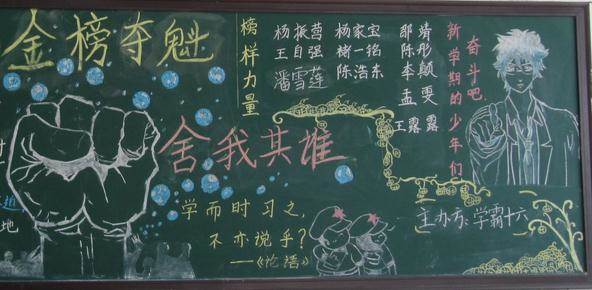 金榜夺魁
榜样力量
杨振营
王自强
潘雪莲
杨家宝
楮一铭
陈浩东
邹婧
陈彤
李颠
孟雯
王露露
奋斗吧
新学期的少年们
舍我其谁
学而时习之,
不亦说乎?
——《论语》
主办方:学霸十六
地